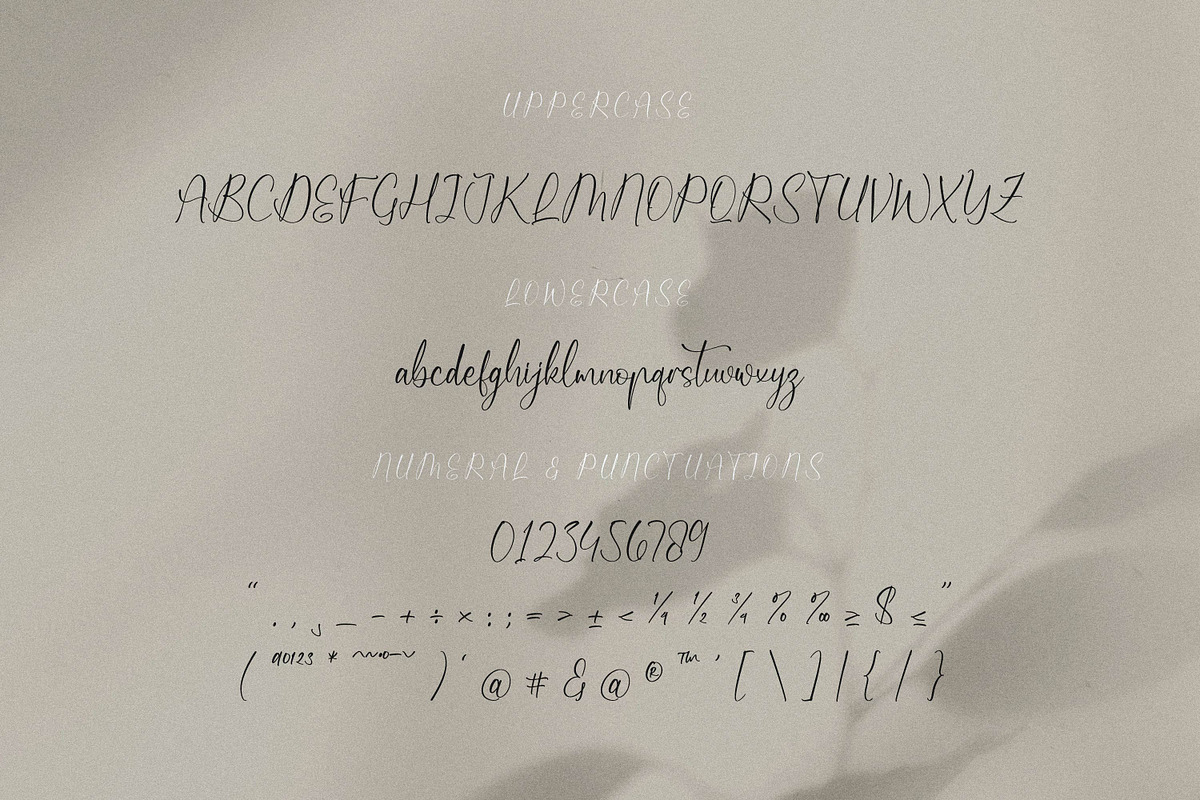 UPPERCASE
ABCDEFGHIJKLMNOPQRSTUVWXYZ
LOWERCASE
abcdefghijklmnopqrstuvwxyz
NUMERAL & PUNCTUATIONS
0123456789
“ . , ¸ _ - + ÷ × : ; = > ± < ¼ ½ ¾ % ‰ ≥ $ ≤ ”
( ªº¹²³ * ) ‘ @ # & @ ® ™ ’ [ \ ] | { / }